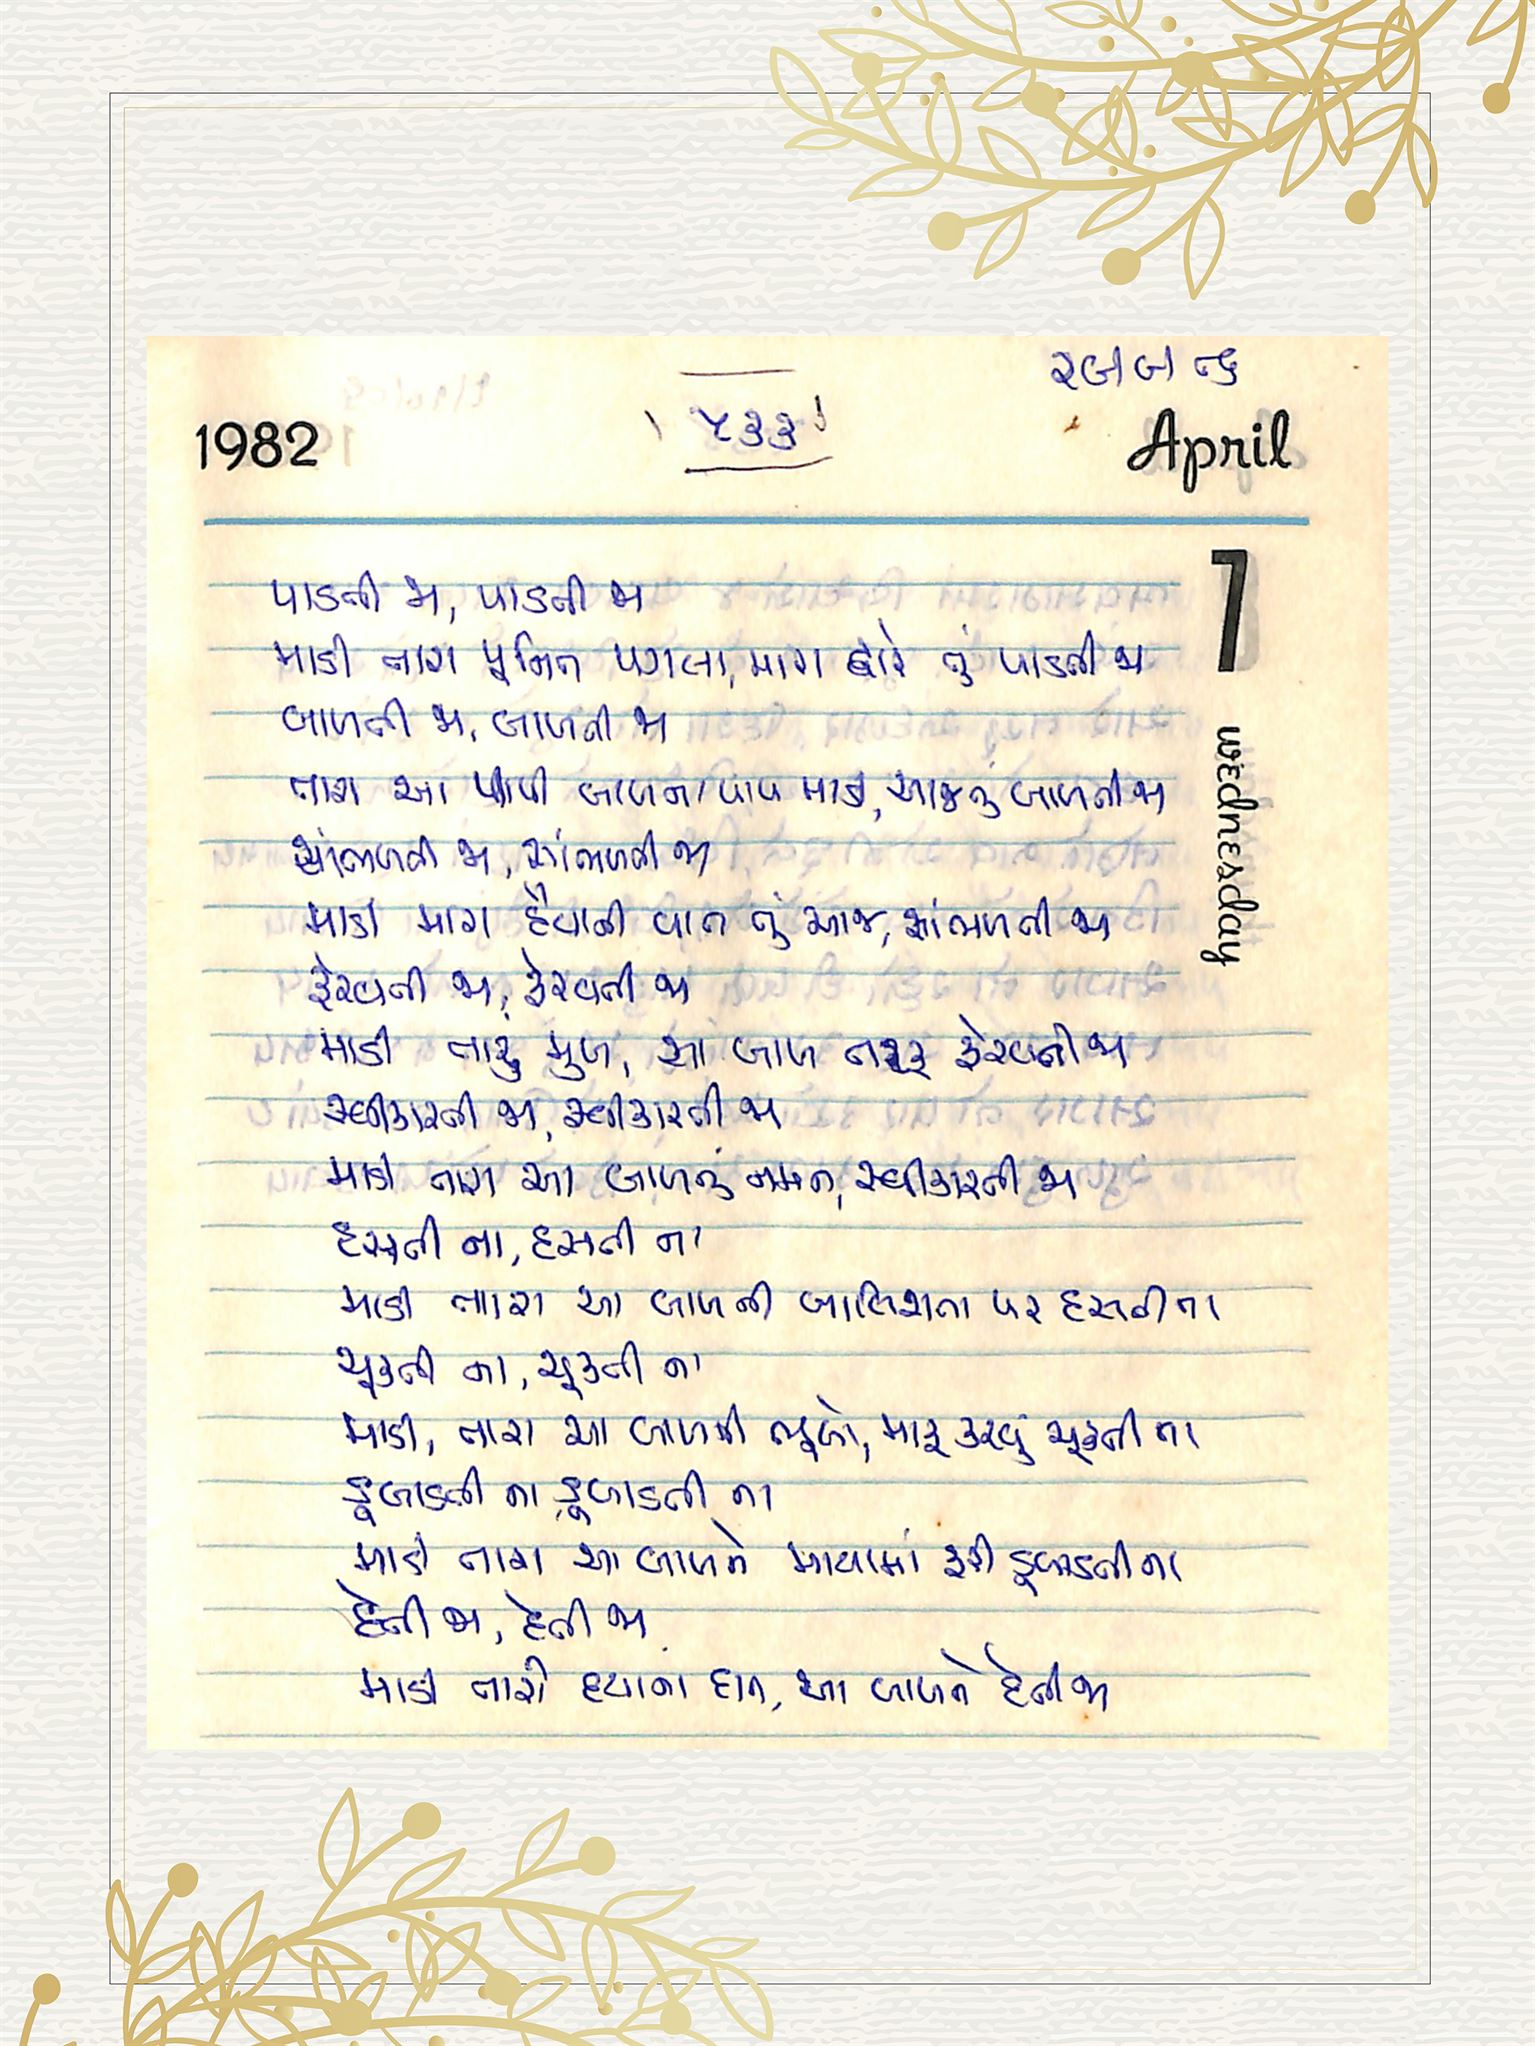 ૫૩૩
1982
April
7
wednesday
પાડતી જા, પાડતી જા
માડી તારા પુનિત પગલા, મારા દ્વારે તું પાડતી જા
બાળતી જા, બાળતી જા
તારા આ પાપી બાળના પાપ માડી, આજ તું બાળતી જા
સાંભળતી જા, સાંભળતી જા
માડી મારા હૈયાની વાત તું આજ, સાંભળતી જા
ફેરવતી જા, ફેરવતી જા
માડી તારું મુખ, આ બાળ તરફ ફેરવતી જા
સ્વીકારતી જા, સ્વીકારતી જા
માડી તારા આ બાળનું નમન, સ્વીકારતી જા
હસતી ના, હસતી ના
માડી તારા આ બાળની બાલિશતા પર હસતી ના
ચૂકતી ના, ચૂકતી ના
માડી, તારા આ બાળની ભૂલો, માફ કરવું ચૂકતી ના
ડૂબાડતી ના, ડૂબાડતી ના
માડી તારા આ બાળને માયામાં ફરી ડૂબાડતી ના
દેતી જા, દેતી જા
માડી તારી દયાના દાન, આ બાળને દેતી જા